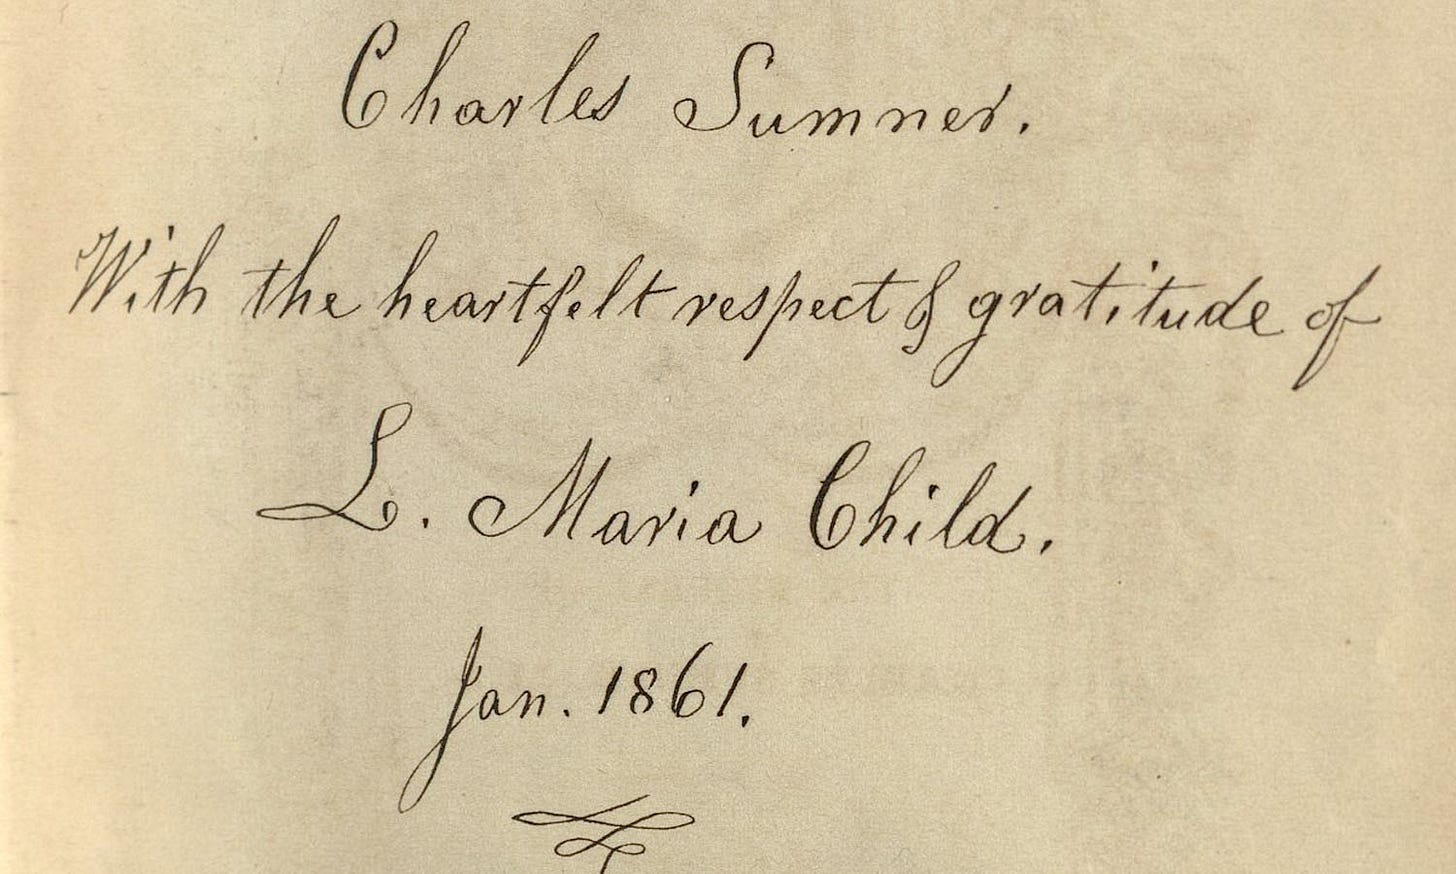 Charles Sumner.
With the heartfelt respect & gratitude of
L. Maria Child.
Jan. 1861.